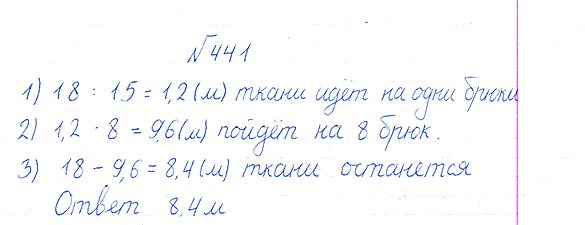 №441
1) 18 : 15 = 1,2 (м) ткани идёт на одни брюки
2) 1,2 · 8 = 9,6 (м) пойдёт на 8 брюк.
3) 18 - 9,6 = 8,4 (м) ткани останется
Ответ 8,4 м